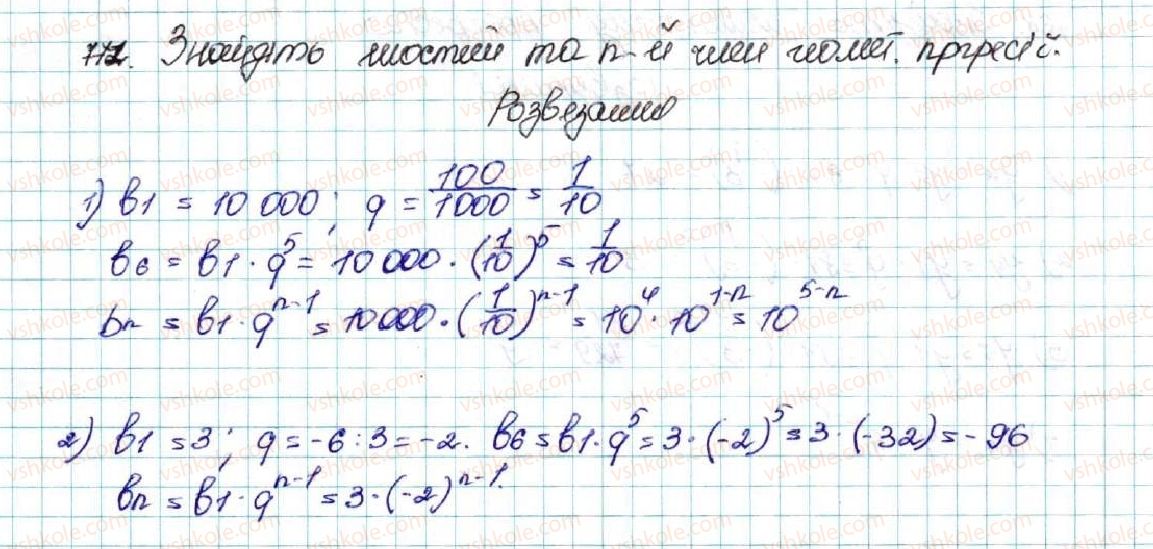 772. Знайдіть шостий та n-й член геомет. прогресії.
Розвезання
1) b1 = 10 000; q = 100/1000 = 1/10
b6 = b1 · q^5 = 10 000 · (1/10)^5 = 1/10
bn = b1 · q^(n-1) = 10000 · (1/10)^(n-1) = 10^4 · 10^(1-n) = 10^(5-n)
2) b1 = 3; q = -6 : 3 = -2. b6 = b1 · q^5 = 3 · (-2)^5 = 3 · (-32) = -96
bn = b1 · q^(n-1) = 3 · (-2)^(n-1).